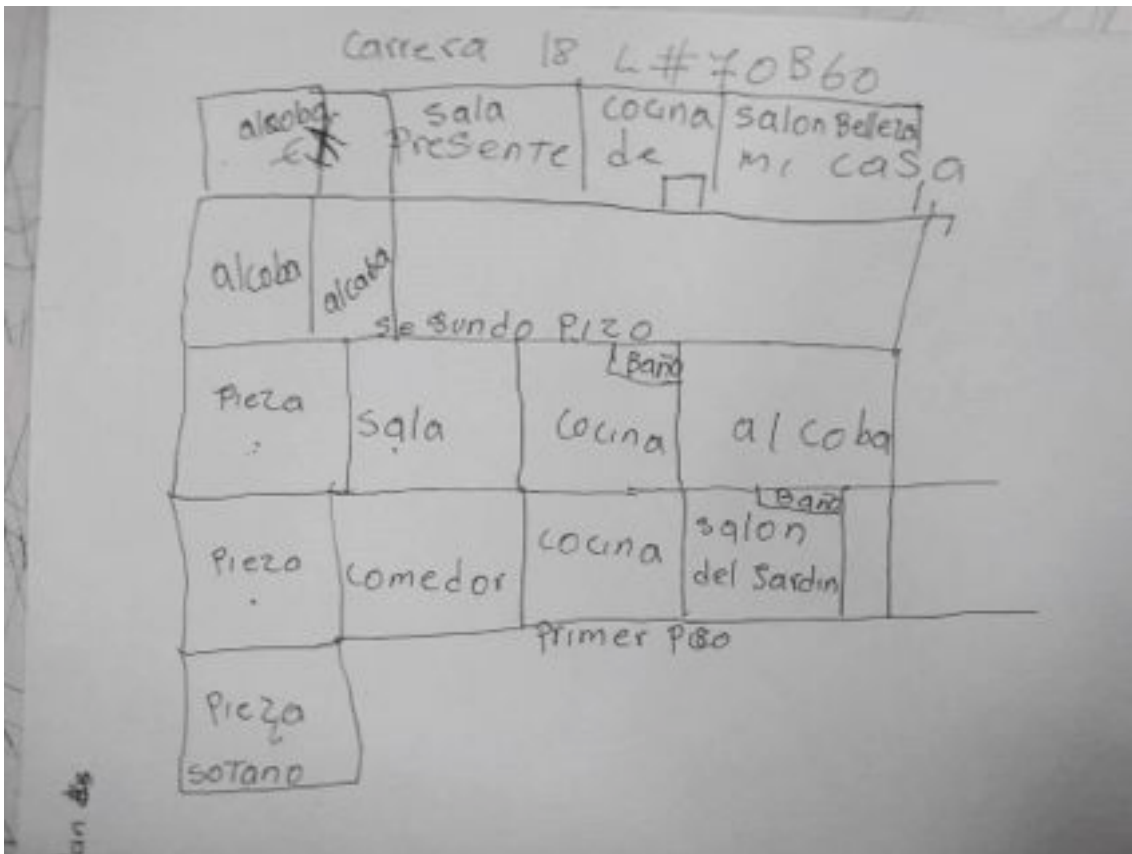 Carrera 18 L #70B60
alcoba sala cocina salon Belleza
Presente de mi casa
alcoba alcoba
segundo Pizo
Baño
Pieza sala cocina alcoba
Baño
Piezo comedor cocina salon
del Jardin
Primer Piso
Pieza
sotano